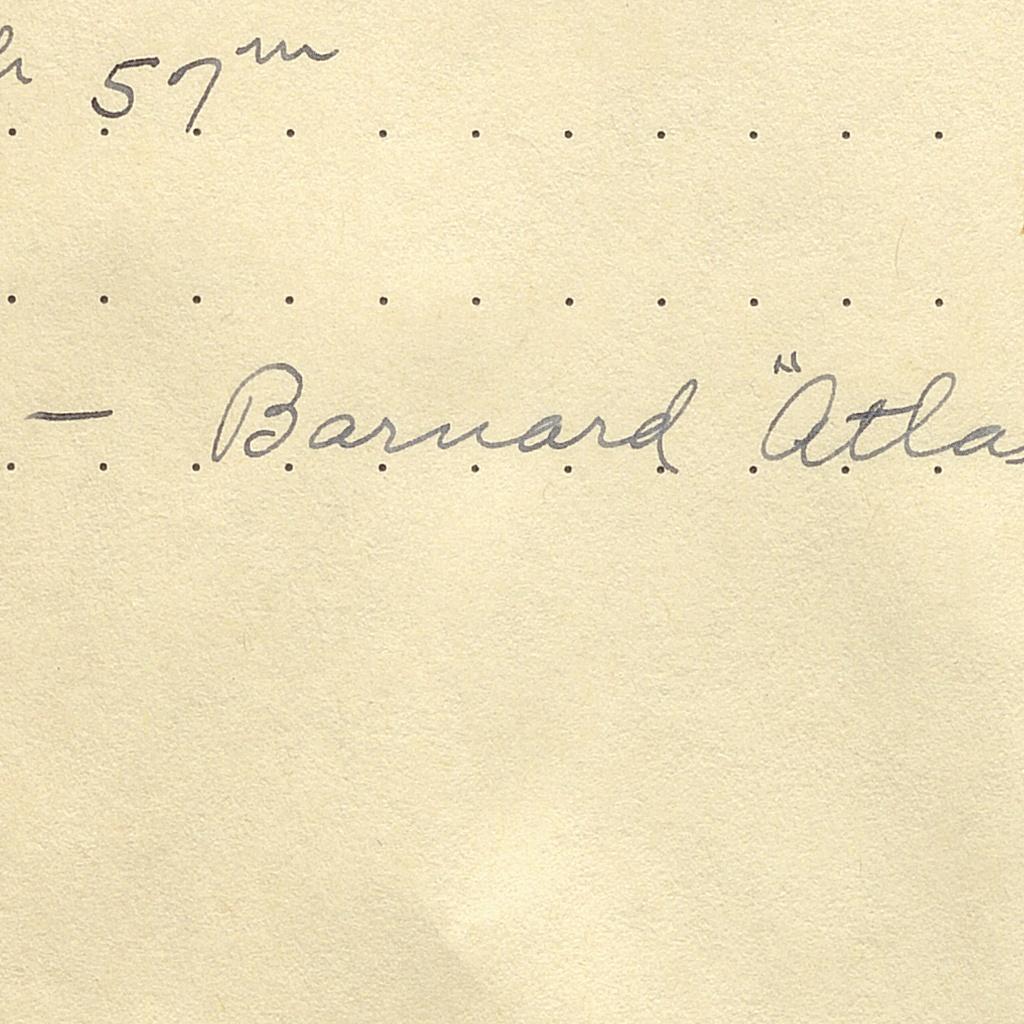 h 57m
— Barnard "Atlas